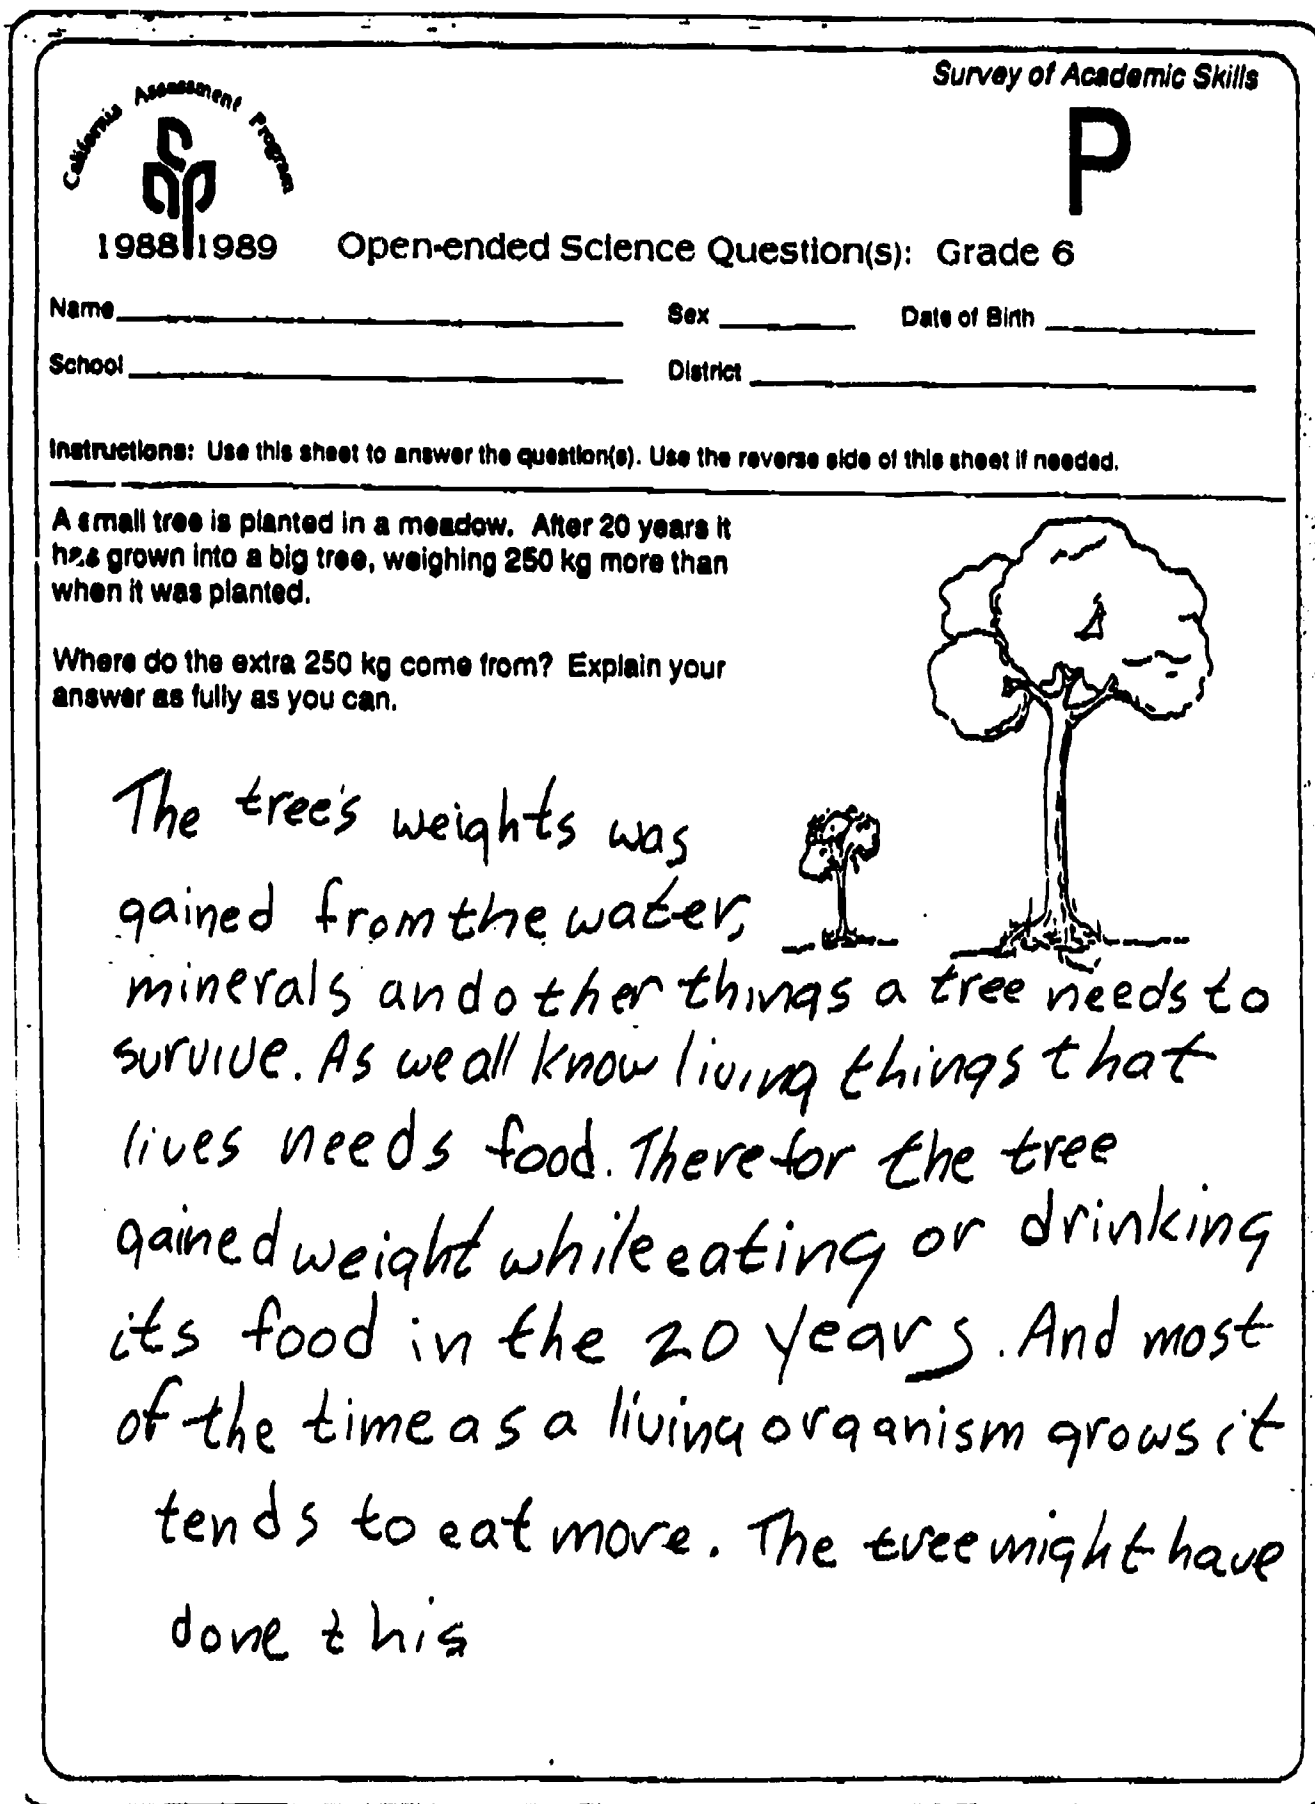 Survey of Academic Skills
California Assessment Program
P
CAP
1988 1989
Open-ended Science Question(s): Grade 6
Name Sex Date of Birth
School District
Instructions: Use this sheet to answer the question(s). Use the reverse side of this sheet if needed.
A small tree is planted in a meadow. After 20 years it
has grown into a big tree, weighing 250 kg more than
when it was planted.
Where do the extra 250 kg come from? Explain your
answer as fully as you can.
The tree's weights was
gained from the water,
minerals and other things a tree needs to
survive. As we all know living things that
lives needs food. Therefor the tree
gained weight while eating or drinking
its food in the 20 years. And most
of the time as a living organism grows it
tends to eat more. The tree might have
done this